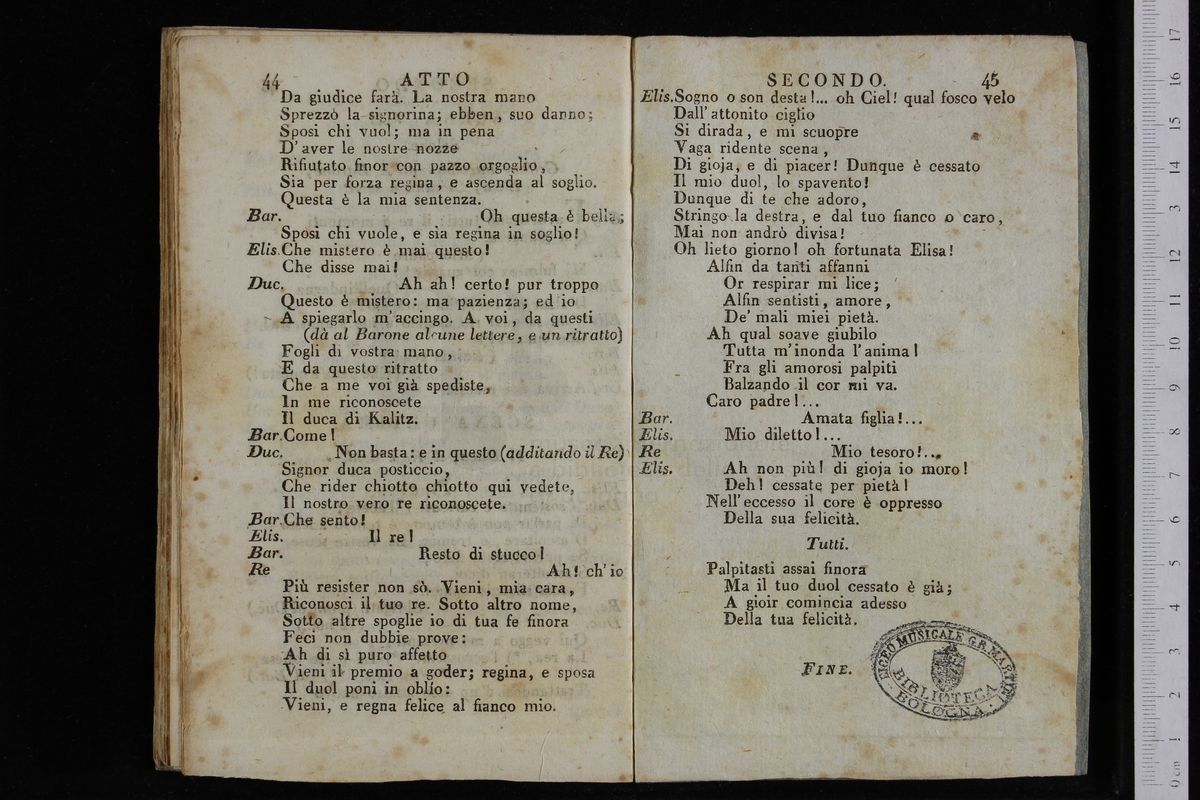 44 ATTO
Da giudice farà. La nostra mano
Sprezzò la signorina; ebben, suo danno;
Sposi chi vuol; ma in pena
D'aver le nostre nozze
Rifiutato finor con pazzo orgoglio,
Sia per forza regina, e ascenda al soglio.
Questa è la mia sentenza.
Bar. Oh questa è bella;
Sposi chi vuole, e sia regina in soglio!
Elis. Che mistero è mai questo!
Che disse mai!
Duc. Ah ah! certo! pur troppo
Questo è mistero: ma pazienza; ed io
A spiegarlo m'accingo. A voi, da questi
(dà al Barone alcune lettere, e un ritratto)
Fogli di vostra mano,
E da questo ritratto
Che a me voi già spediste,
In me riconoscete
Il duca di Kalitz.
Bar. Come!
Duc. Non basta: e in questo (additando il Re)
Signor duca posticcio,
Che rider chiotto chiotto qui vedete,
Il nostro vero re riconoscete.
Bar. Che sento!
Elis. Il re!
Bar. Resto di stucco!
Re Ah! ch'io
Più resister non sò. Vieni, mia cara,
Riconosci il tuo re. Sotto altro nome,
Sotto altre spoglie io di tua fe finora
Feci non dubbie prove:
Ah di sì puro affetto
Vieni il premio a goder; regina, e sposa
Il duol poni in oblio:
Vieni, e regna felice al fianco mio.
SECONDO. 45
Elis. Sogno o son desta!... oh Ciel! qual fosco velo
Dall'attonito ciglio
Si dirada, e mi scuopre
Vaga ridente scena,
Di gioja, e di piacer! Dunque è cessato
Il mio duol, lo spavento!
Dunque di te che adoro,
Stringo la destra, e dal tuo fianco o caro,
Mai non andrò divisa!
Oh lieto giorno! oh fortunata Elisa!
Alfin da tanti affanni
Or respirar mi lice;
Alfin sentisti, amore,
De' mali miei pietà.
Ah qual soave giubilo
Tutta m'inonda l'anima!
Fra gli amorosi palpiti
Balzando il cor mi va.
Caro padre!...
Bar. Amata figlia!...
Elis. Mio diletto!...
Re Mio tesoro!...
Elis. Ah non più! di gioja io moro!
Deh! cessate per pietà!
Nell'eccesso il core è oppresso
Della sua felicità.
Tutti.
Palpitasti assai finora
Ma il tuo duol cessato è già;
A gioir comincia adesso
Della tua felicità.
FINE.
LICEO MUSICALE G.B. MARTINI
BIBLIOTECA
BOLOGNA
0 cm 1 2 3 4 5 6 7 8 9 10 11 12 13 14 15 16 17